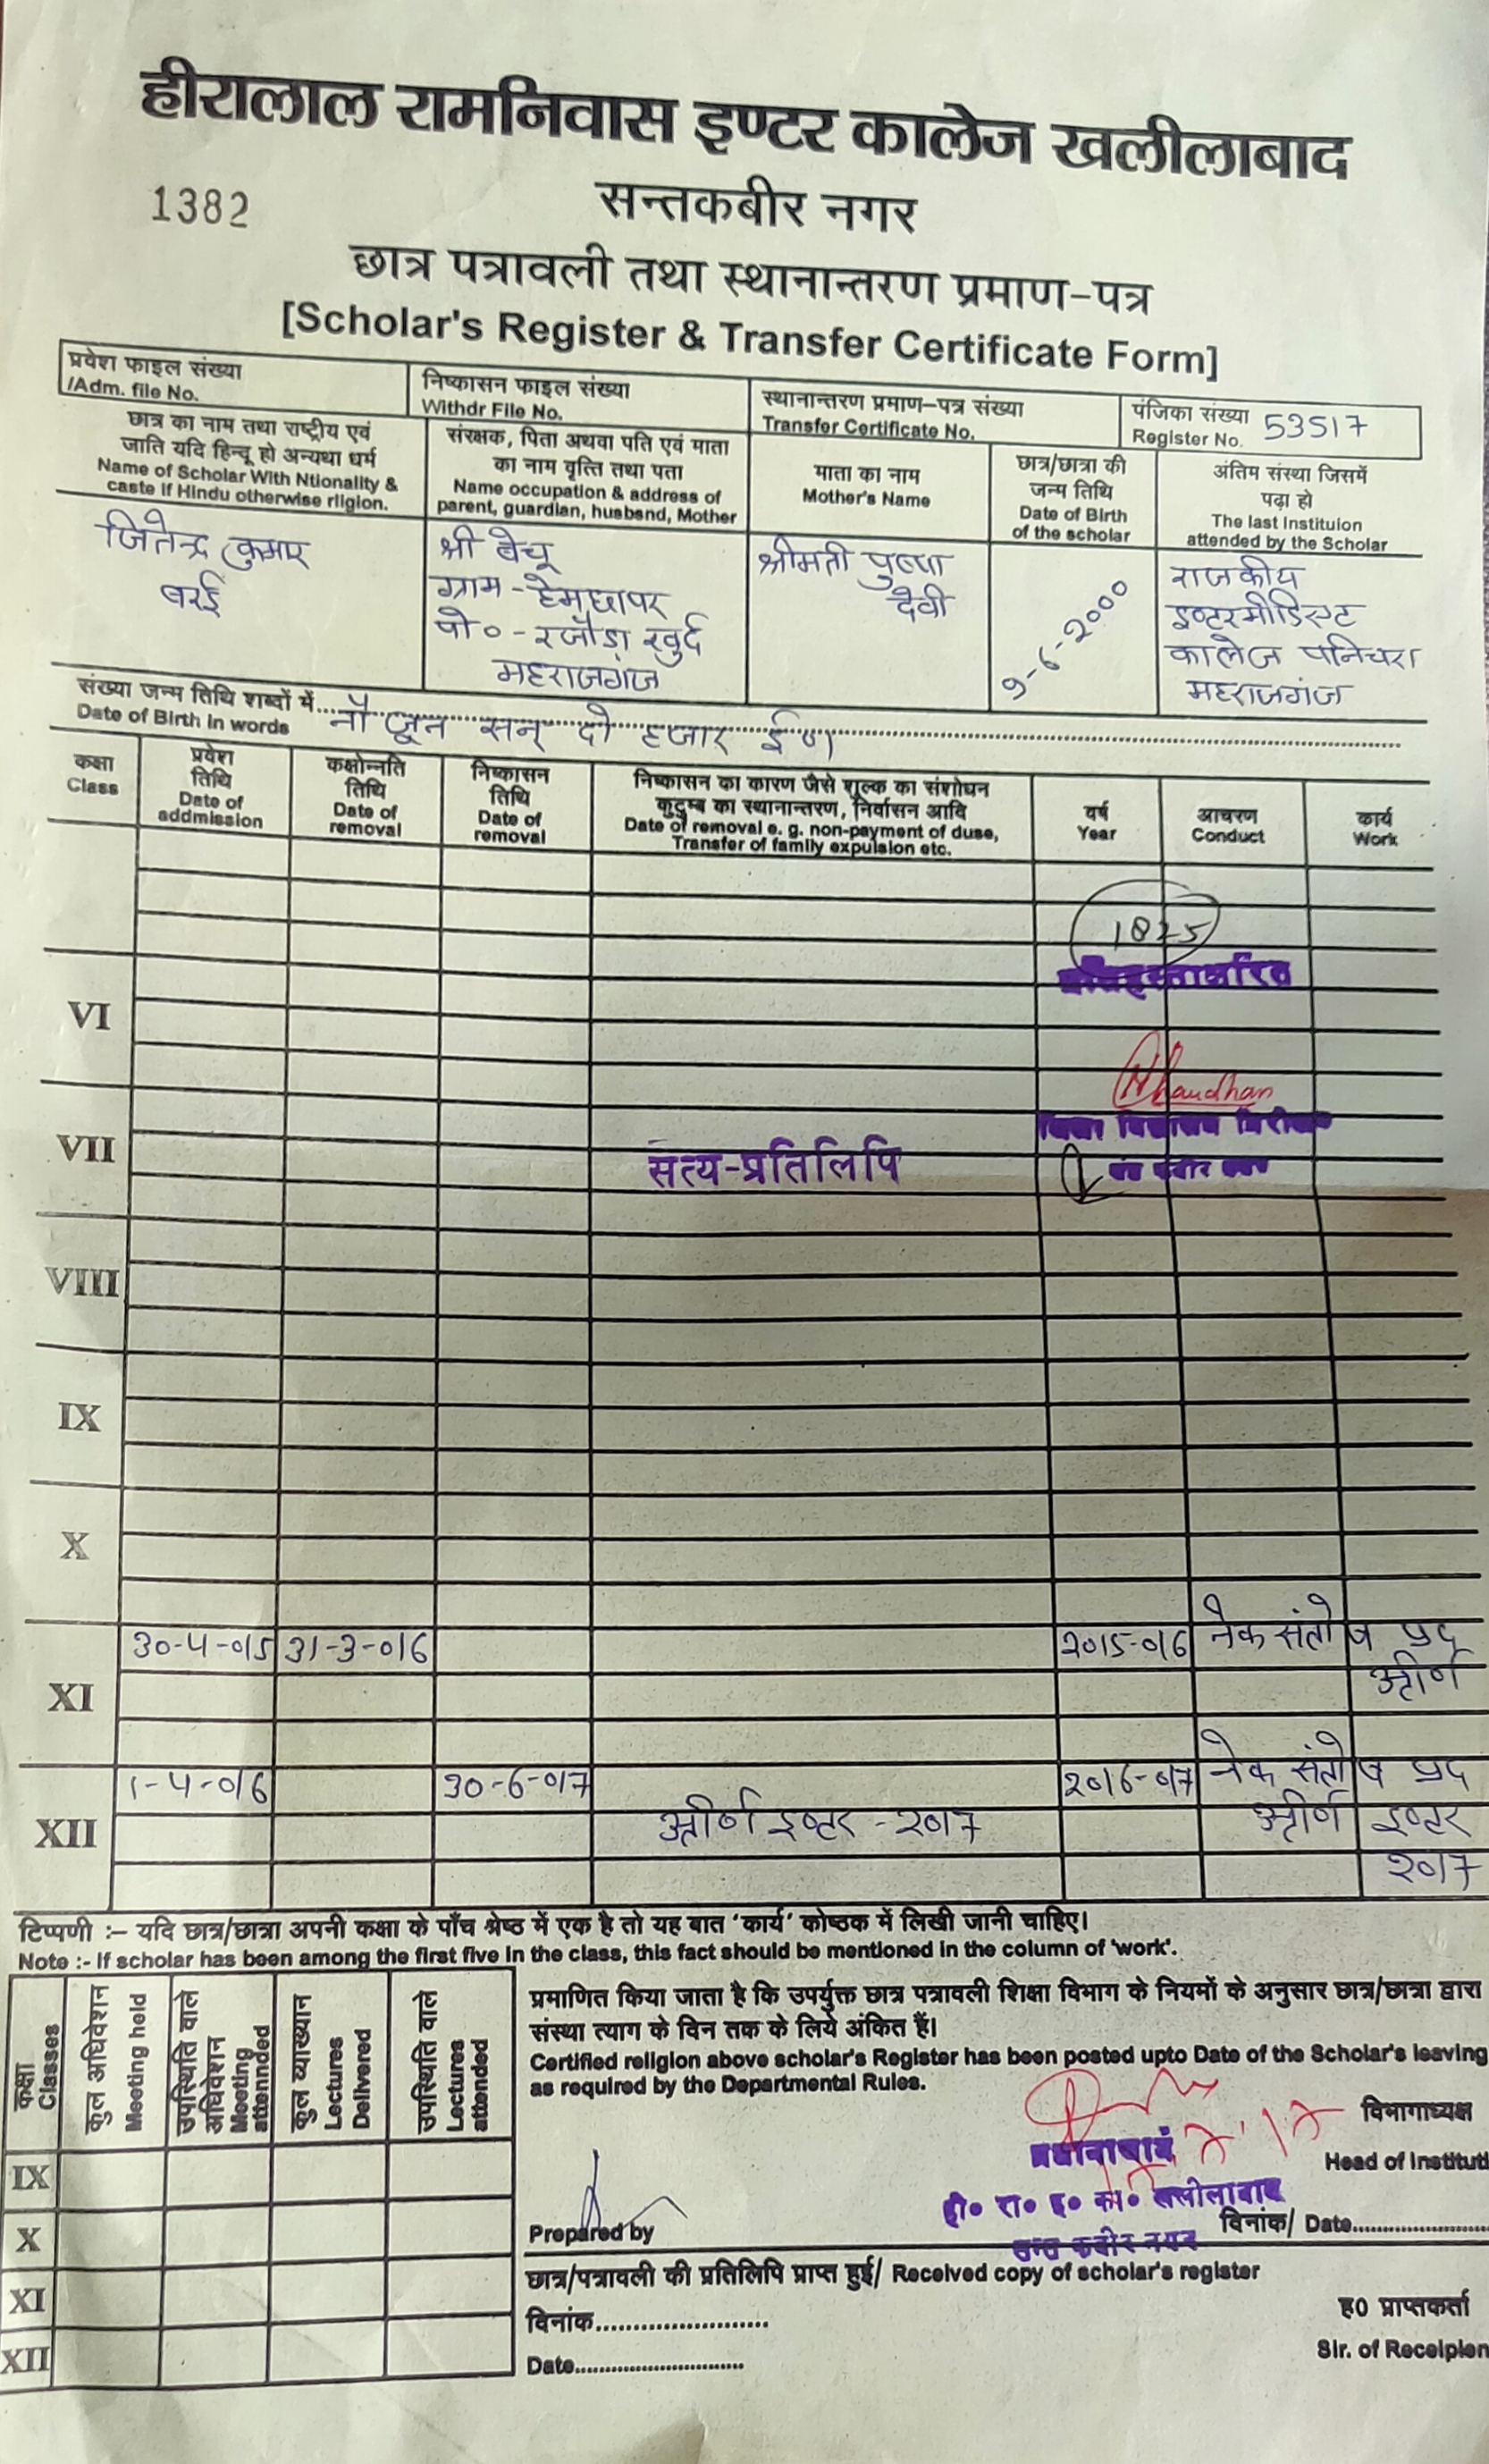 हीरालाल रामनिवास इण्टर कालेज खलीलाबाद
1382
सन्तकबीर नगर
छात्र पत्रावली तथा स्थानान्तरण प्रमाण-पत्र
[Scholar's Register & Transfer Certificate Form]
प्रवेश फाइल संख्या
/Adm. file No.
निष्कासन फाइल संख्या
Withdr File No.
स्थानान्तरण प्रमाण-पत्र संख्या
Transfer Certificate No.
पंजिका संख्या 53517
Register No.
छात्र का नाम तथा राष्ट्रीय एवं
जाति यदि हिन्दू हो अन्यथा धर्म
Name of Scholar With Ntionality &
caste if Hindu otherwise rligion.
संरक्षक, पिता अथवा पति एवं माता
का नाम वृत्ति तथा पता
Name occupation & address of
parent, guardian, husband, Mother
माता का नाम
Mother's Name
छात्र/छात्रा की
जन्म तिथि
Date of Birth
of the scholar
अंतिम संस्था जिसमें
पढ़ा हो
The last Instituion
attended by the Scholar
जितेन्द्र कुमार
बरई
श्री बेचू
ग्राम - हेमछापर
पो० - रजौड़ा खुर्द
महराजगंज
श्रीमती पुष्पा
देवी
9-6-2000
राजकीय
इण्टरमीडिएट
कालेज पनिचरा
महराजगंज
संख्या जन्म तिथि शब्दों में... नौ जून सन् दो हजार ई०
Date of Birth in words
कक्षा
Class
प्रवेश
तिथि
Date of
addmission
कक्षोन्नति
तिथि
Date of
removal
निष्कासन
तिथि
Date of
removal
निष्कासन का कारण जैसे शूल्क का संशोधन
कुटुम्ब का स्थानान्तरण, निर्वासन आदि
Date of removal e. g. non-payment of duse,
Transfer of family expulsion etc.
वर्ष
Year
आचरण
Conduct
कार्य
Work
1825
VI
VII
सत्य-प्रतिलिपि
VIII
IX
X
XI
30-4-015 31-3-016 2015-016 नेक संतोष प्रद
उत्तीर्ण
XII
1-4-016 30-6-017 2016-017 नेक संतोष प्रद
उत्तीर्ण इण्टर - 2017 उत्तीर्ण इण्टर
2017
टिप्पणी :– यदि छात्र/छात्रा अपनी कक्षा के पाँच श्रेष्ठ में एक है तो यह बात 'कार्य' कोष्ठक में लिखी जानी चाहिए।
Note :- If scholar has been among the first five in the class, this fact should be mentioned in the column of 'work'.
कक्षा
Classes
कुल अधिवेशन
Meeting held
उपस्थिति वाले
अधिवेशन
Meeting
attennded
कुल व्याख्यान
Lectures
Delivered
उपस्थिति वाले
Lectures
attended
IX
X
XI
XII
प्रमाणित किया जाता है कि उपर्युक्त छात्र पत्रावली शिक्षा विभाग के नियमों के अनुसार छात्र/छात्रा द्वारा
संस्था त्याग के दिन तक के लिये अंकित हैं।
Certified religion above scholar's Register has been posted upto Date of the Scholar's leaving
as required by the Departmental Rules.
विभागाध्यक्ष
Head of Instituti
प्रधानाचार्य
ही० रा० इ० का० खलीलाबाद
सन्त कबीर नगर
Prepared by
दिनांक/ Date
छात्र/पत्रावली की प्रतिलिपि प्राप्त हुई/ Received copy of scholar's register
दिनांक
Date
ह0 प्राप्तकर्ता
Sir. of Receipien